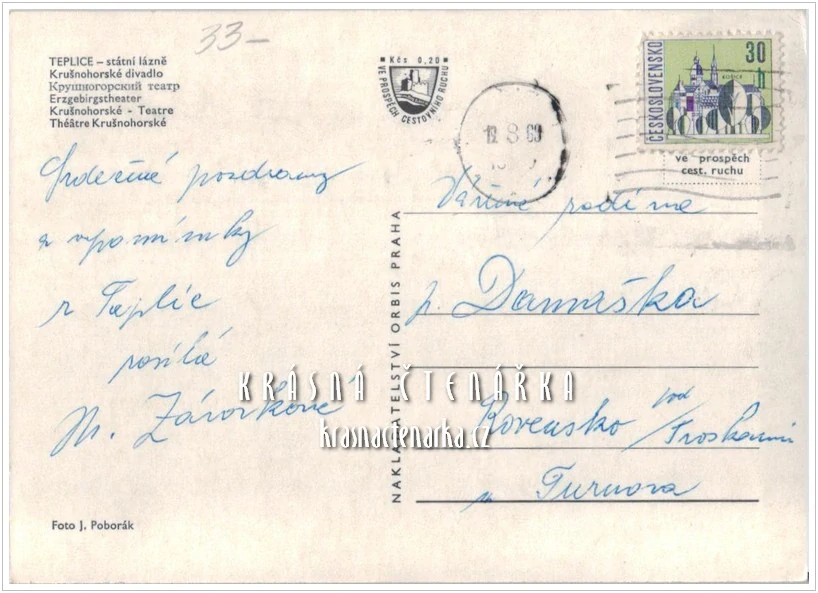 33-
TEPLICE – státní lázně
Krušnohorské divadlo
Крушногорский театр
Erzgebirgstheater
Krušnohorské - Teatre
Théâtre Krušnohorské
Kčs 0,20
VE PROSPĚCH CESTOVNÍHO RUCHU
8 69
ČESKOSLOVENSKO
30
h
ve prospěch
cest. ruchu
Srdečné pozdravy
a vzpomínky
z Teplic
posílá
M. Závorková
Vážená rodina
p. Damaška
Rovensko / pod Troskami
u Turnova
NAKLADATELSTVÍ ORBIS PRAHA
KRÁSNÁ ČTENÁŘKA
krasnactenarka.cz
Foto J. Poborák